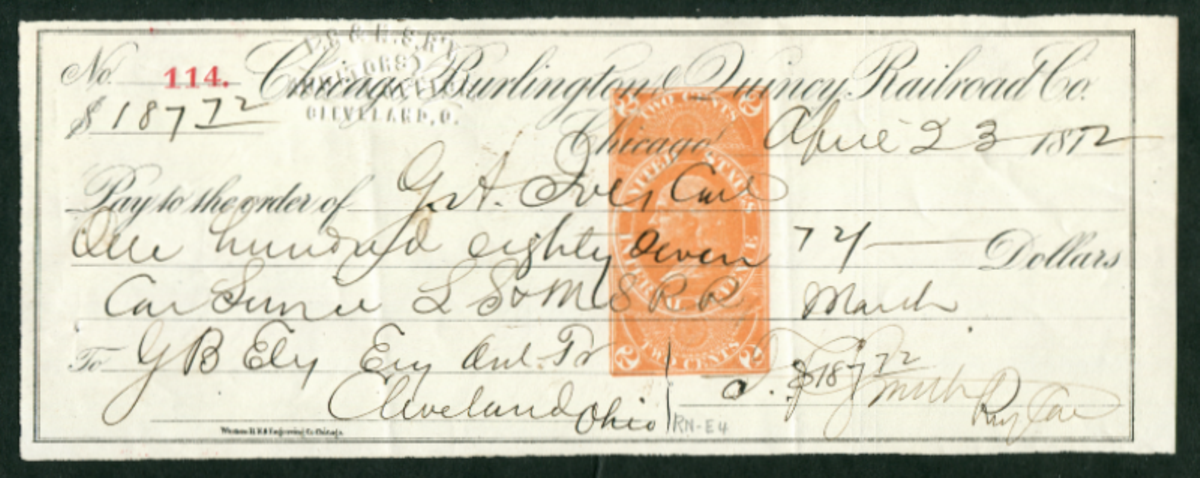 No. 114. Chicago, Burlington & Quincy Railroad Co.
$187 72
CLEVELAND, O.
Chicago, April 23 1872
Pay to the order of G. A. Ives Car
One hundred eighty seven 72/ Dollars
Car Service L S & M S R R March
To G B Ely
$187 72
Smith
Cleveland Ohio
RN-E4
TWO CENTS
UNITED STATES
INTERNAL REVENUE
TWO CENTS
Western B. N. & Engraving Co. Chicago.